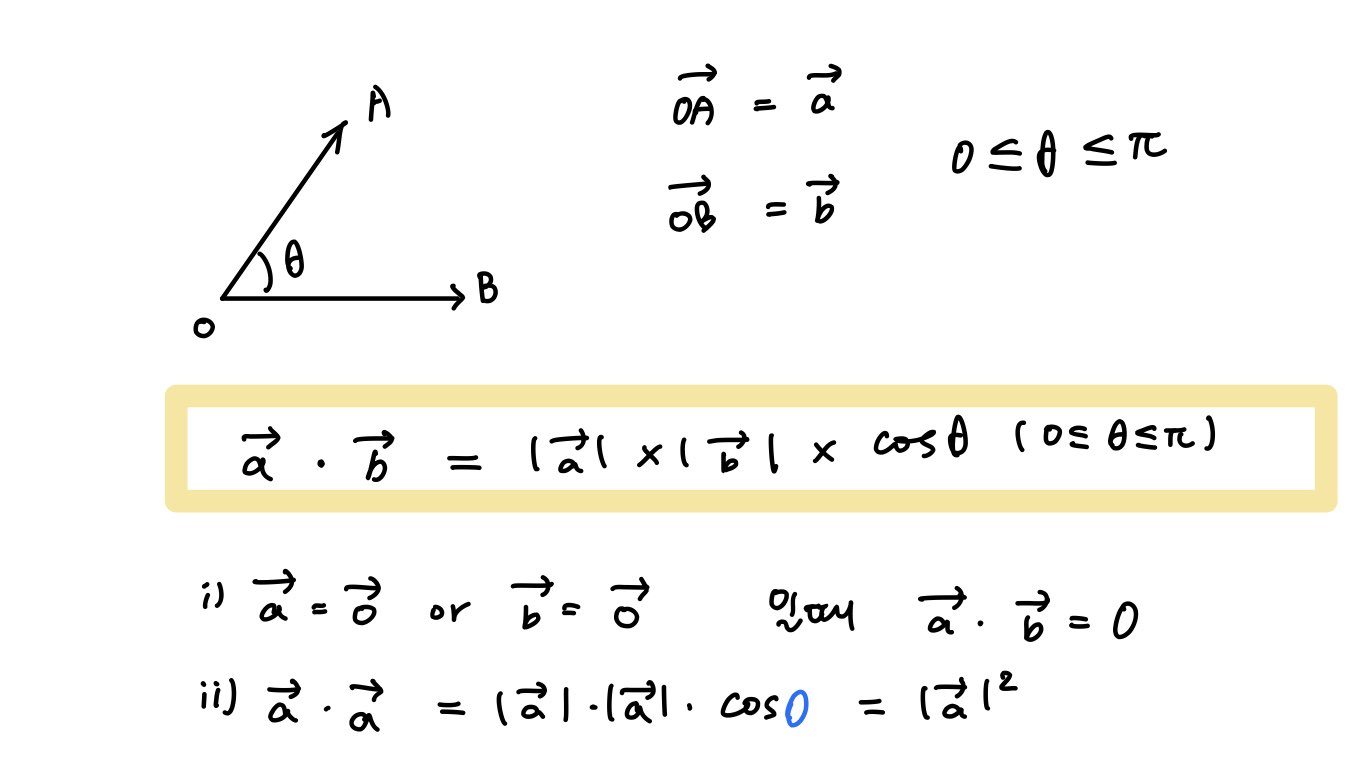 A
θ
B
O
$\overrightarrow{OA} = \vec{a}$
$\overrightarrow{OB} = \vec{b}$
$0 \le \theta \le \pi$
$\vec{a} \cdot \vec{b} = |\vec{a}| \times |\vec{b}| \times \cos\theta \ (0 \le \theta \le \pi)$
i) $\vec{a} = \vec{0}$ or $\vec{b} = \vec{0}$ 일때 $\vec{a} \cdot \vec{b} = 0$
ii) $\vec{a} \cdot \vec{a} = |\vec{a}| \cdot |\vec{a}| \cdot \cos 0 = |\vec{a}|^2$